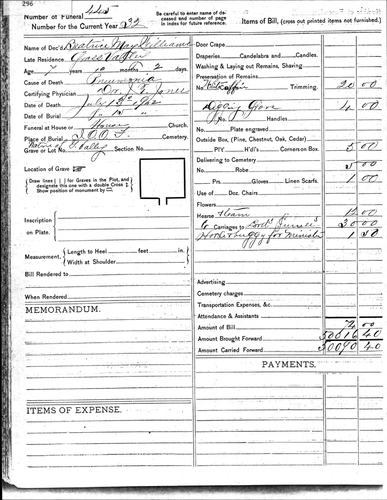 296
Number of Funeral 445
Number for the Current Year 32
Be careful to enter name of deceased and number of page in index for future reference.
Items of Bill, (cross out printed items not furnished.)
Name of Dec'd Beatrice May Williams
Late Residence Grass Valley
Age years months 2 days
Cause of Death Pneumonia
Certifying Physician Dr. Jones
Date of Death July 12th
Date of Burial
Funeral at House Church.
Place of Burial I.O.O.F. Cemetery.
Native of G. Valley
Grave or Lot No. Section
Location of Grave
Draw lines for Graves in the Plot, and designate this one with a double Cross
Show position of monument by
Inscription on Plate.
Measurement. Length to Heel feet in.
Width at Shoulder
Bill Rendered to
When Rendered
MEMORANDUM.
ITEMS OF EXPENSE.
Door Crape
Draperies Candelabra and Candles.
Washing & Laying out Remains. Shaving
Preservation of Remains
No. Coffin Trimming. 20 00
Digging Grave 4 00
No. Handles
Plate engraved
Outside Box, (Pine, Chestnut, Oak, Cedar)
P'IY H'dl's Corners on Box. 5 00
Delivering to Cemetery
No. Robe 5 00
Prs. Gloves Linen Scarfs. 1 00
Use of Doz. Chairs
Flowers
Hearse Team 12 00
6 Carriages to 30 00
Horse & buggy for Minister
Advertising
Cemetery charges
Transportation Expenses, &c.
Attendance & Assistants
Amount of Bill 74 00
Amount Brought Forward 50016 40
Amount Carried Forward 50090 40
PAYMENTS.